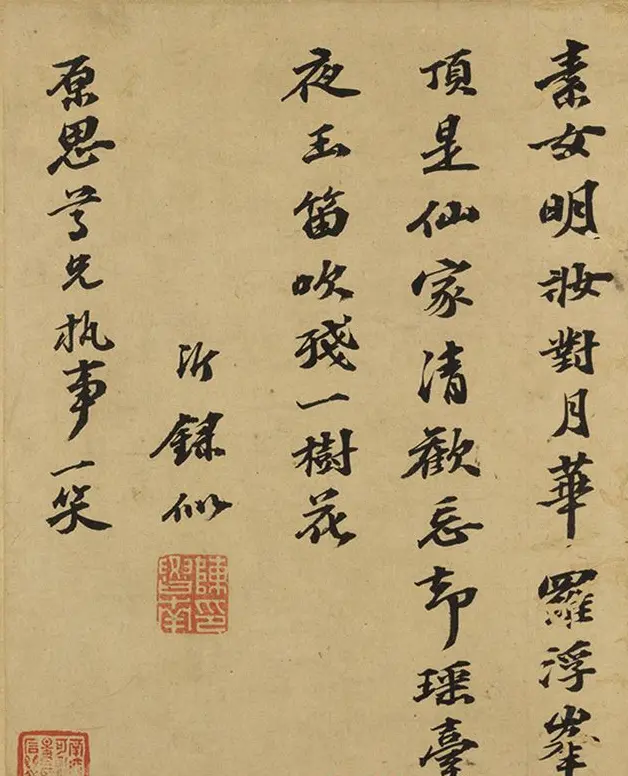 素女明妝對月華羅浮峯
頂是仙家清歡忘却瑤臺
夜玉笛吹殘一樹花
沂錄似
原思尊兄執事一笑